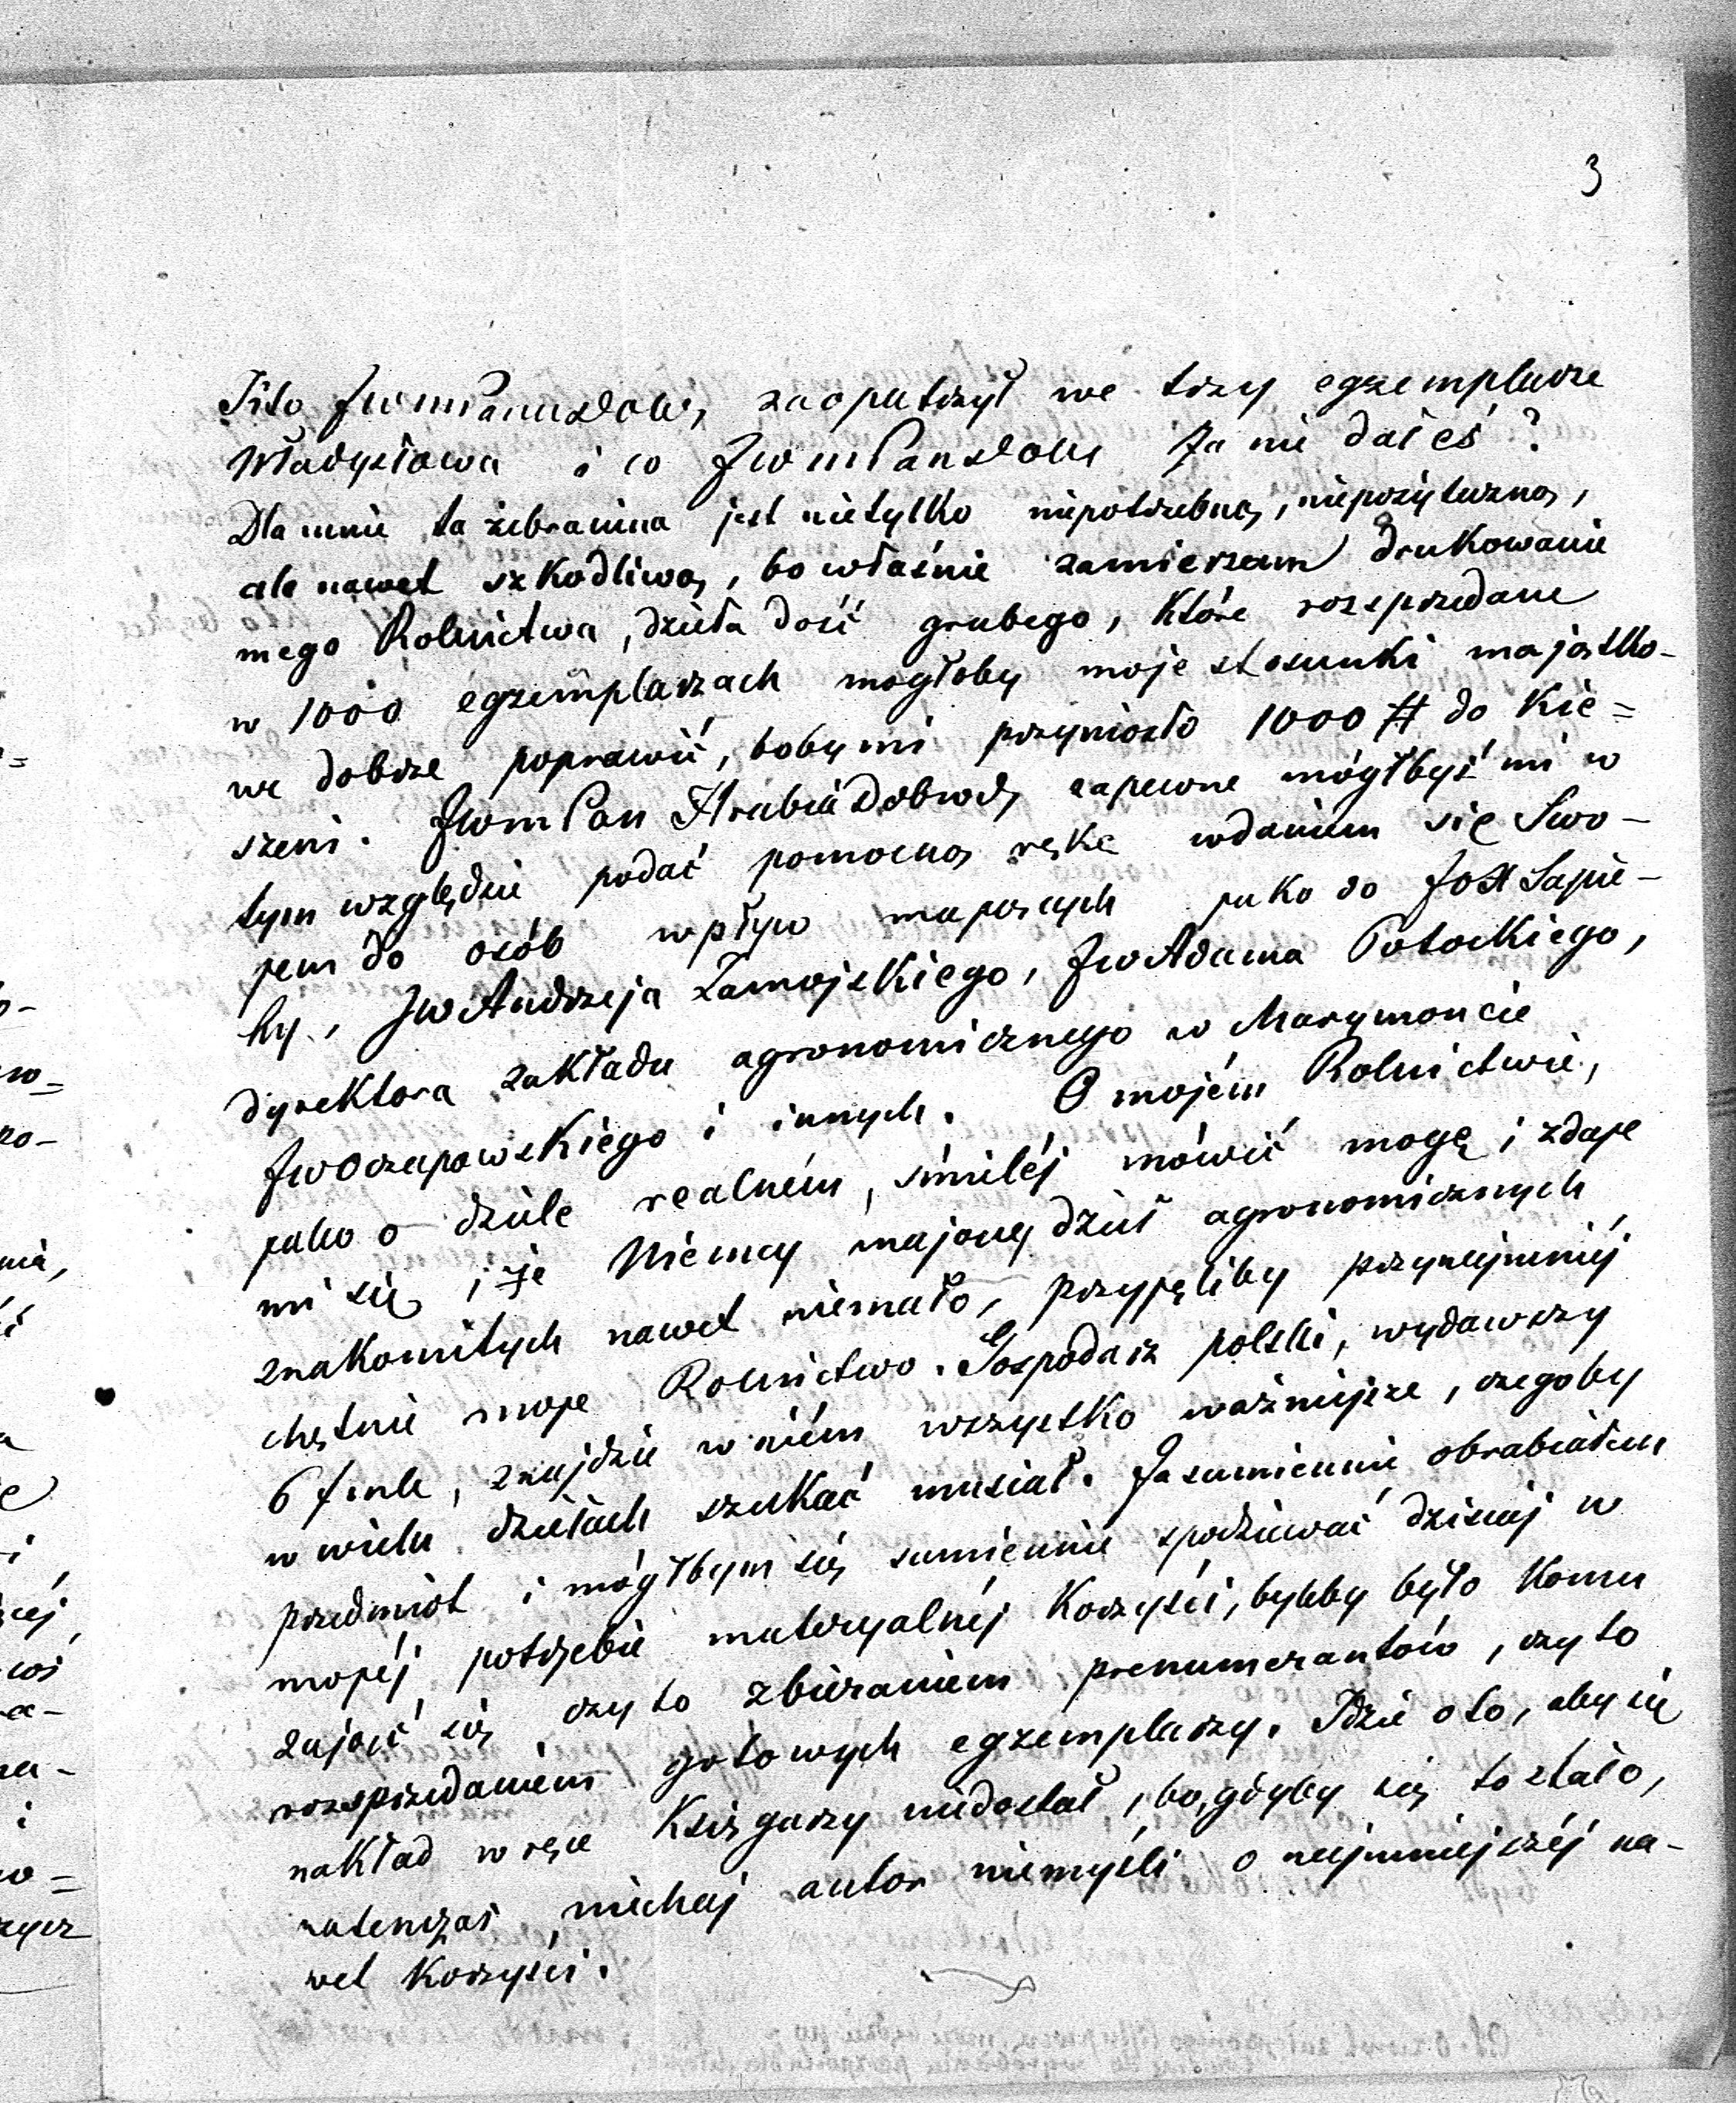 3
Tito JWmPanuDob, zaopatrzył we trzy egzemplarze
Władysława i co JWmPanDob za nie dałeś?
Dla mnie ta żebranina jest nietylko niepotrzebną, niepożyteczną,
ale nawet szkodliwą, bo właśnie zamierzam drukowanie
mego Rolnictwa, dzieła dość grubego, które rozsprzedane
w 1000 egzemplarzach mogłoby moje stosunki majątko-
we dobrze poprawić, boby mi przyniosło 1000 # do kie=
szeni. JWmPan Hrabia Dobrodz, zapewne mógłbyś mi w
tym względzie podać pomocną rękę wdaniem się Swo-
jem do osób wpływ mających jako do JOX Sapie-
hy, JW Andrzeja Zamojskiego, JW Adama Potockiego,
dyrektora zakładu agronomicznego w Marymoncie
JW Oczapowskiego i innych. O mojém Rolnictwie,
jako o dziele realném, śmiléj mówić mogę i zdaje
mi się, iże Niemcy mający dzieł agronomicznych
znakomitych nawet niemało, przyjęliby przynajmniéj
chętnie moje Rolnictwo. Gospodarz polski, wydawszy
6 fl, znajdzie w niém wszystko ważniejsze, czegoby
w wielu dziełach szukać musiał. Ja sumiennie obrabiałem
przedmiot i mógłbym się sumiennie spodziewać dzisiaj w
mojéj potrzebie materyalnéj korzyści, byleby było komu
zająć się czy to zbieraniem prenumerantów, czy to
rozsprzedaniem gotowych egzemplarzy. Idzie oto, aby się
nakład w ręce Księgarzy niedostał, bo, gdyby się to stało,
natenczas niechaj autor niemyśli o najmniejszéj na-
wet korzyści.